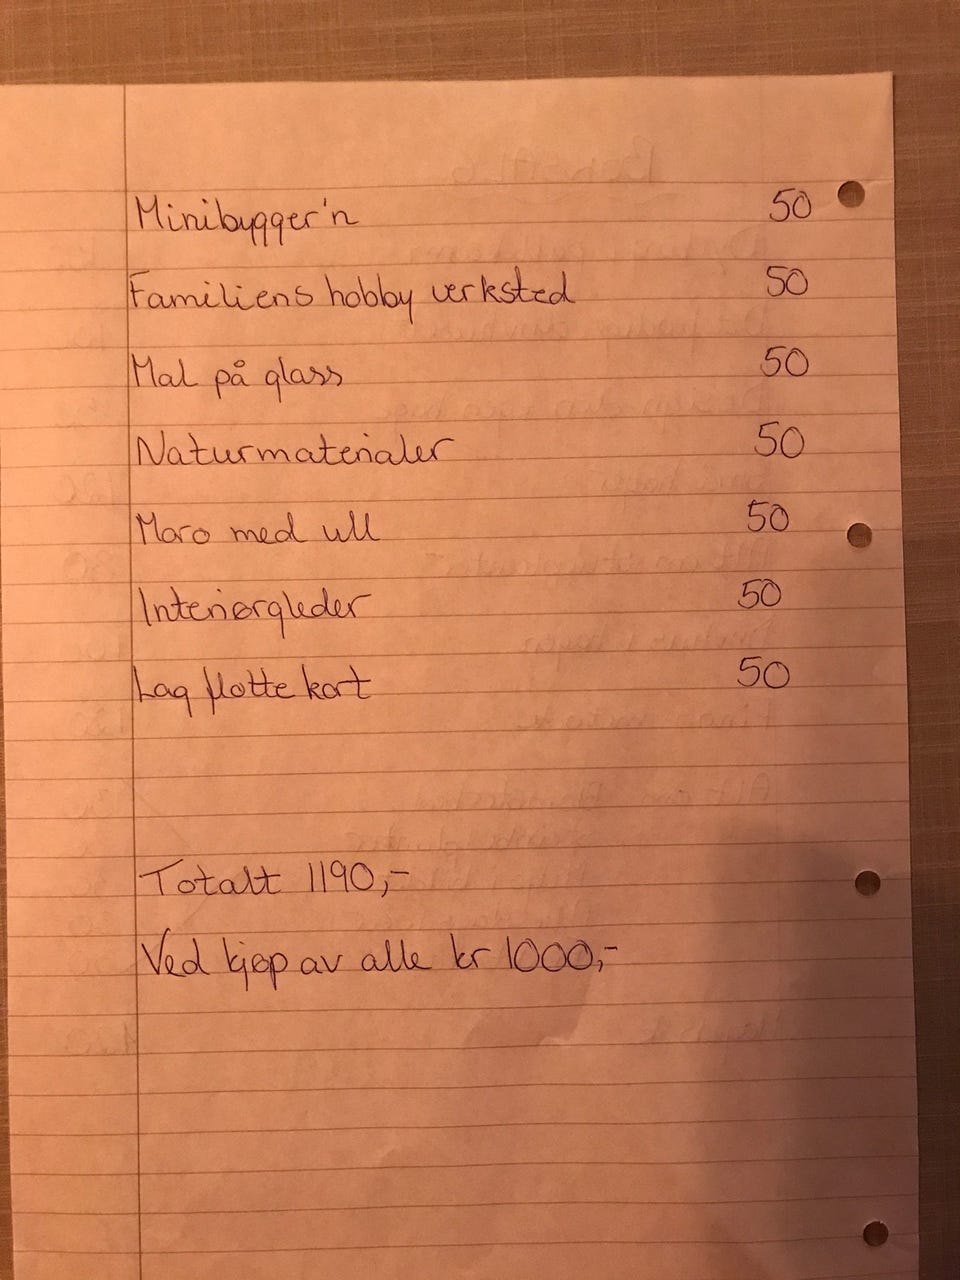 Minibygger'n 50
Familiens hobby verksted 50
Mal på glass 50
Naturmaterialer 50
Moro med ull 50
Interiørgleder 50
Lag flotte kort 50
Totalt 1190,-
Ved kjøp av alle kr 1000,-